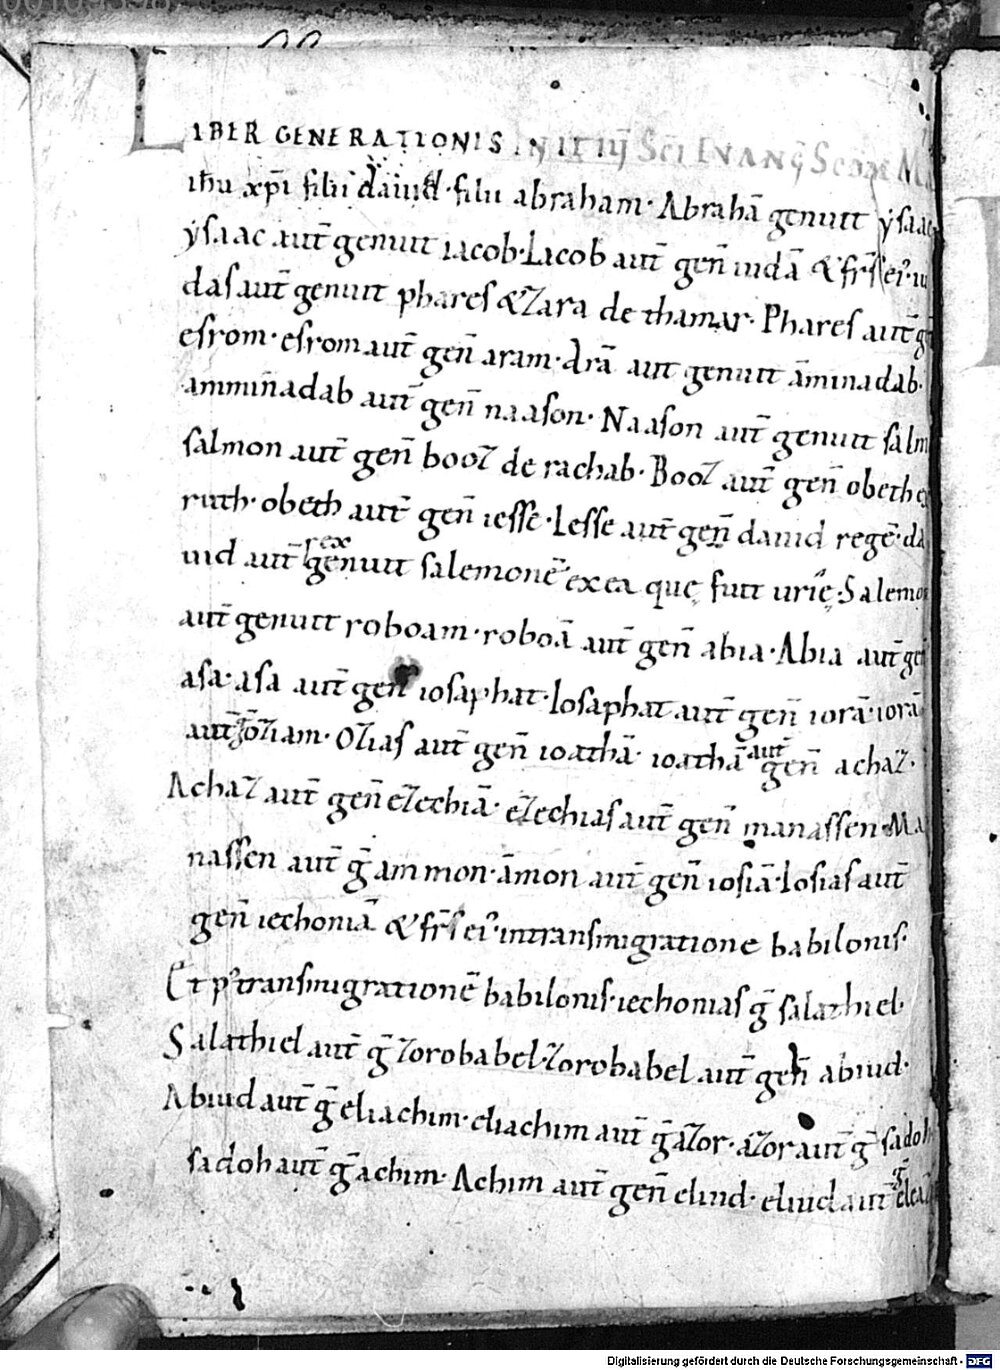 LIBER GENERATIONIS INITIŪ SC̄I EVANG̃ SCDM M
ih̄u xp̄i filii dauid · filii abraham · Abrahā genuit ysaac
ysaac aut̄ genuit iacob · Iacob aut̄ gen̄ iudā & fr̄s ei᷒ · iu
das aut̄ genuit phares & zara de thamar · Phares aut̄ g̃
esrom · esrom aut̄ gen̄ aram · Arā aut genuit āminadab ·
amminadab aut̄ gen̄ naason · Naason aut̄ genuit salm
salmon aut̄ gen̄ booz de rachab · Booz aut̄ gen̄ obeth ex
ruth · obeth aut̄ gen̄ iesse · Iesse aut̄ gen̄ dauid regē · da
uid aut̄ rex genuit salemonē ex ea quę fuit urię · Salemon
aut̄ genuit roboam · roboā aut̄ gen̄ abia · Abia aut̄ gen̄
asa · asa aut̄ gen̄ iosaphat · Iosaphat aut̄ gen̄ iorā · iorā
aut̄ g̃ oziam · Ozias aut̄ gen̄ ioathā · ioathā aut̄ gen̄ achaz ·
Achaz aut̄ gen̄ ezechiā · ezechias aut̄ gen̄ manassen · Ma
nassen aut̄ g̃ ammon · āmon aut̄ gen̄ iosiā · Iosias aut̄
gen̄ iechoniā & fr̄s ei᷒ · in transmigratione babilonis ·
Et p᷒ transmigrationē babilonis · iechonias g̃ salathiel ·
Salathiel aut̄ g̃ zorobabel · zorobabel aut̄ gen̄ abiud ·
Abiud aut̄ g̃ eliachim · eliachim aut̄ g̃ azor · azor aut̄ g̃ sadoh
sadoh aut̄ g̃ achim · Achim aut̄ gen̄ eliud · eliud aut̄ g̃ eleaz
Digitalisierung gefördert durch die Deutsche Forschungsgemeinschaft - DFG